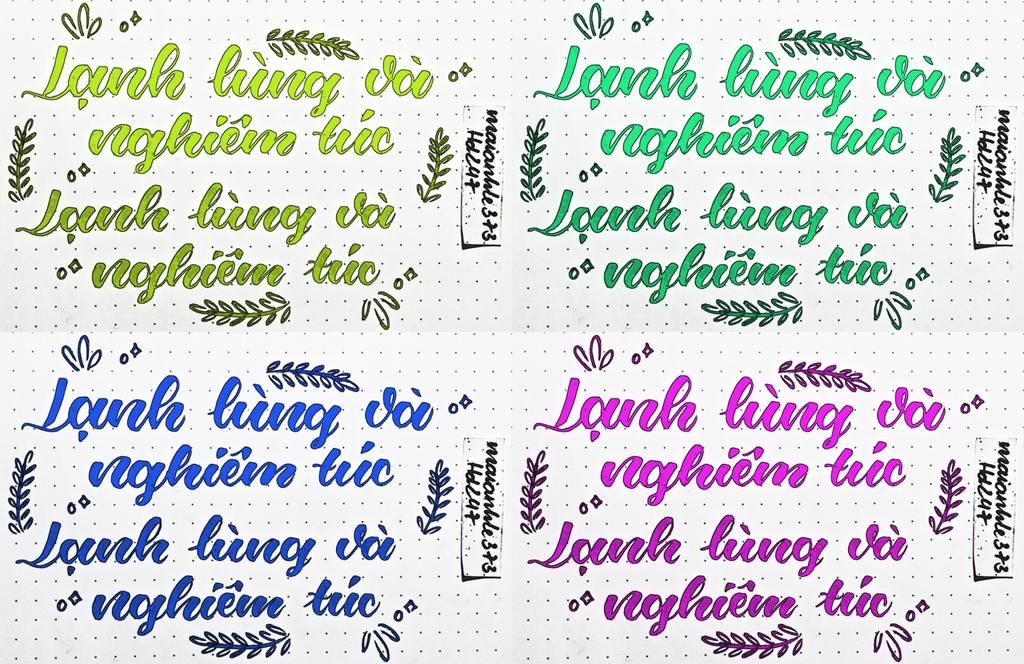 Lạnh lùng và
nghiêm túc
Lạnh lùng và
nghiêm túc
Lạnh lùng và
nghiêm túc
Lạnh lùng và
nghiêm túc
Lạnh lùng và
nghiêm túc
Lạnh lùng và
nghiêm túc
Lạnh lùng và
nghiêm túc
Lạnh lùng và
nghiêm túc